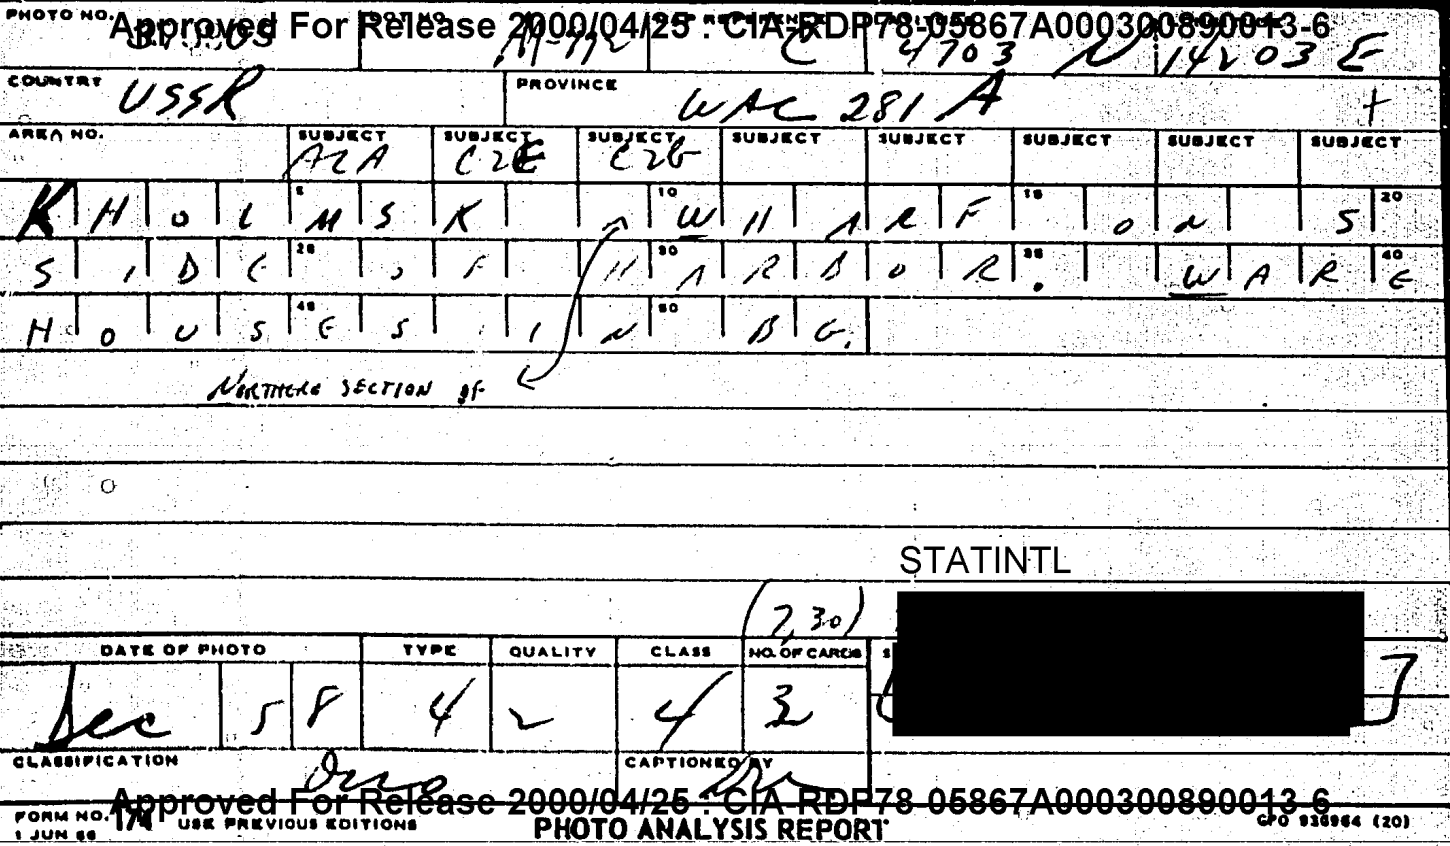 PHOTO NO. Approved For Release 2000/04/25 : CIA-RDP78-05867A000300890013-6
C 4703 N 14203 E
COUNTRY USSR PROVINCE WAC 281 A +
AREA NO. SUBJECT SUBJECT SUBJECT SUBJECT SUBJECT SUBJECT SUBJECT SUBJECT
C2E C2G
5 10 15 20
KHOLMSK WHARF ON S
25 30 35 40
SIDE OF HARBOR. WARE
45 50
HOUSES IN BG.
NORTHERN SECTION OF
STATINTL
(7,30)
DATE OF PHOTO TYPE QUALITY CLASS NO. OF CARDS
Dec 58 4 2 4 3
CLASSIFICATION CAPTIONED BY
Approved For Release 2000/04/25 : CIA-RDP78-05867A000300890013-6
FORM NO. 174 USE PREVIOUS EDITIONS PHOTO ANALYSIS REPORT GPO 936964 (20)
1 JUN 66